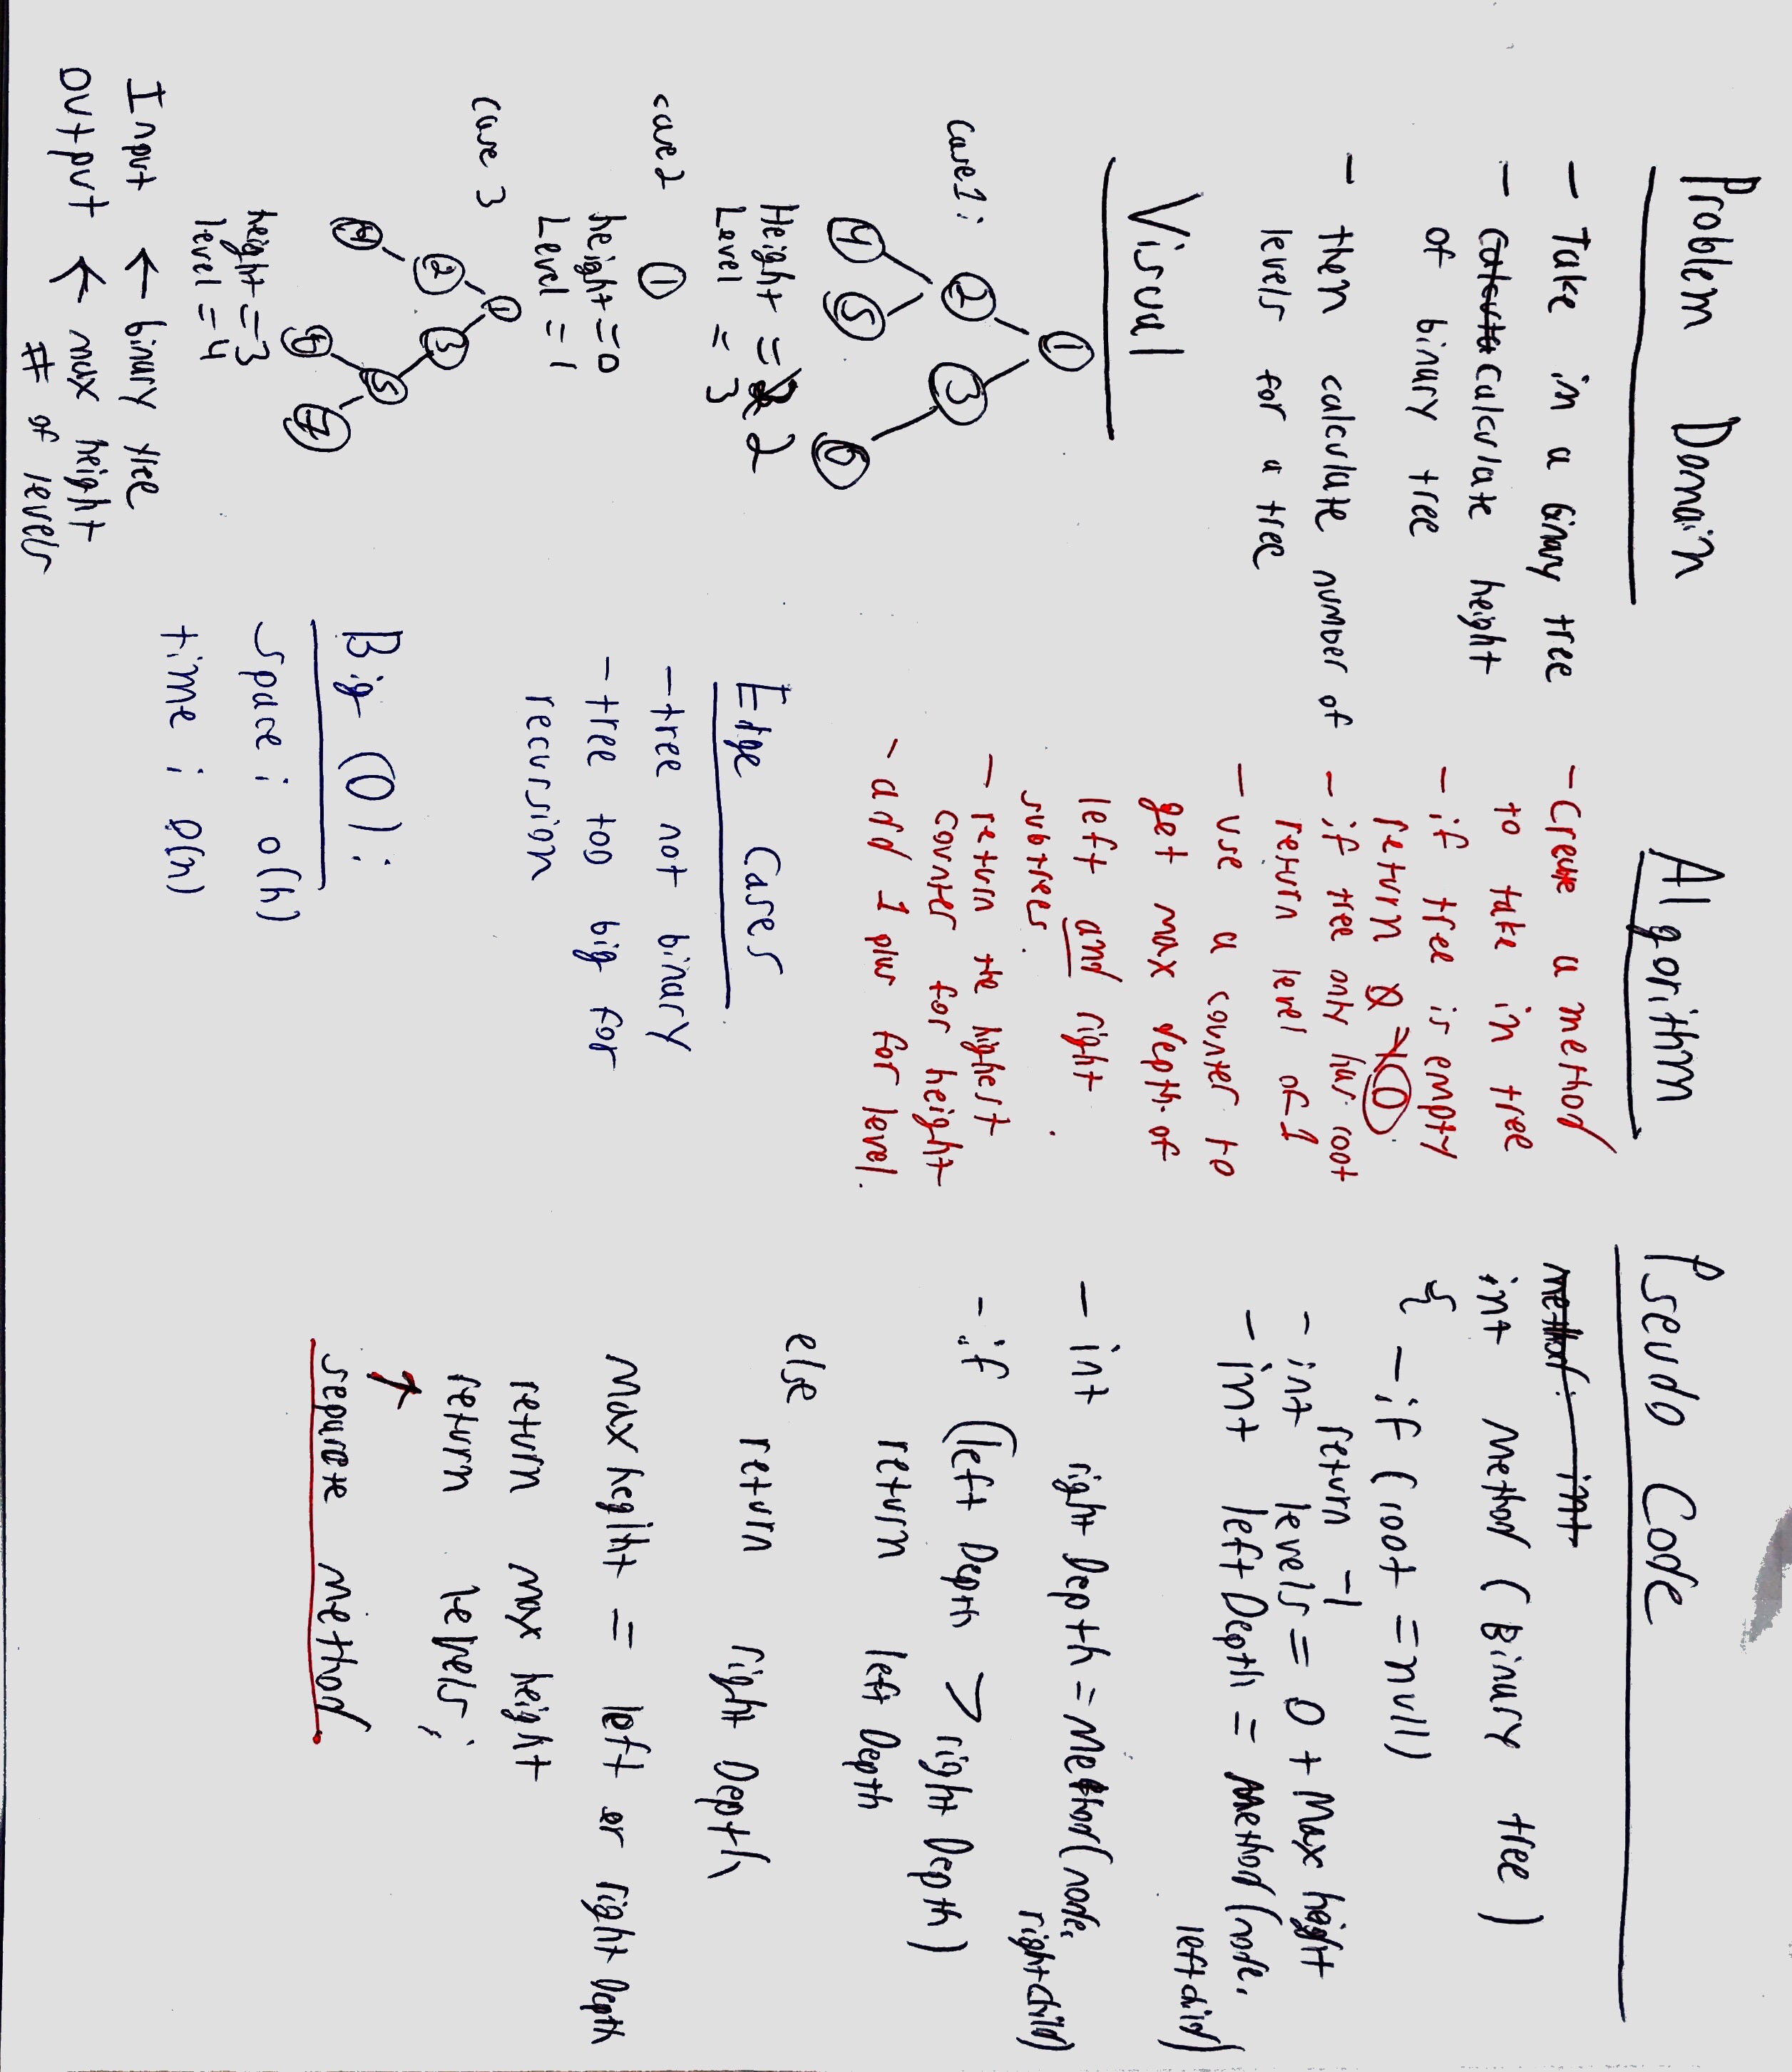 Problem Domain
- Take in a binary tree
- calculate height
of binary tree
- then calculate number of
levels for a tree
Visual
case 1:
1
2
3
4
5
6
Height = 2
Level = 3
case 2
1
height = 0
Level = 1
case 3
1
2
3
4
5
7
height = 3
level = 4
Input ← binary tree
Output ← max height
# of levels
Algorithm
- Create a method
to take in tree
- if tree is empty
return
- if tree only has root
return level of 1
- use a counter to
get max depth of
left and right
subtrees
- return the highest
counter for height
- add 1 plus for level.
Edge Cases
- tree not binary
- tree too big for
recursion
Big (O):
space: o(h)
time: O(n)
Pseudo Code
method: int
int method (Binary tree)
{
- if (root = null)
return -1
- int levels = 0 + Max height
- int left Depth = method (node.
left child)
- int right Depth = Method (node.
right child)
- if (left Depth > right Depth)
return left Depth
else
return right Depth
Max hegiht = left or right Depth
return max height
return levels;
↑
separete method.